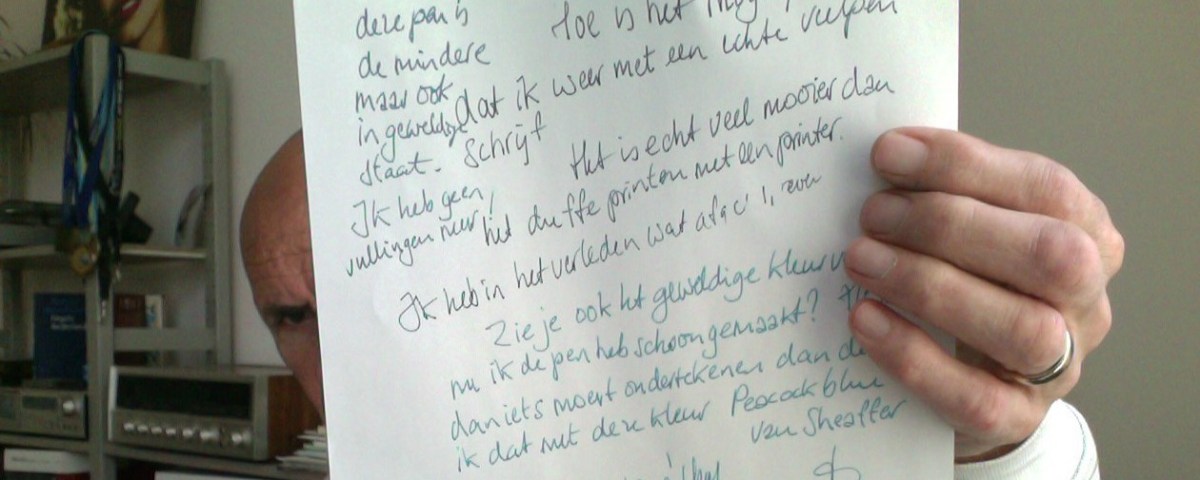 deze pen is
de mindere
maar ook
in geweldige
staat.
Ik heb geen
vullingen meer!
Hoe is het
dat ik weer met een echte vulpen
schrijf
Het is echt veel mooier dan
het duffe printen met een printer.
Ik heb in het verleden wat
Zie je ook het geweldige kleur
nu ik de pen heb schoongemaakt?
dan iets moet ondertekenen dan
ik dat met deze kleur Peacock blue
van Sheaffer